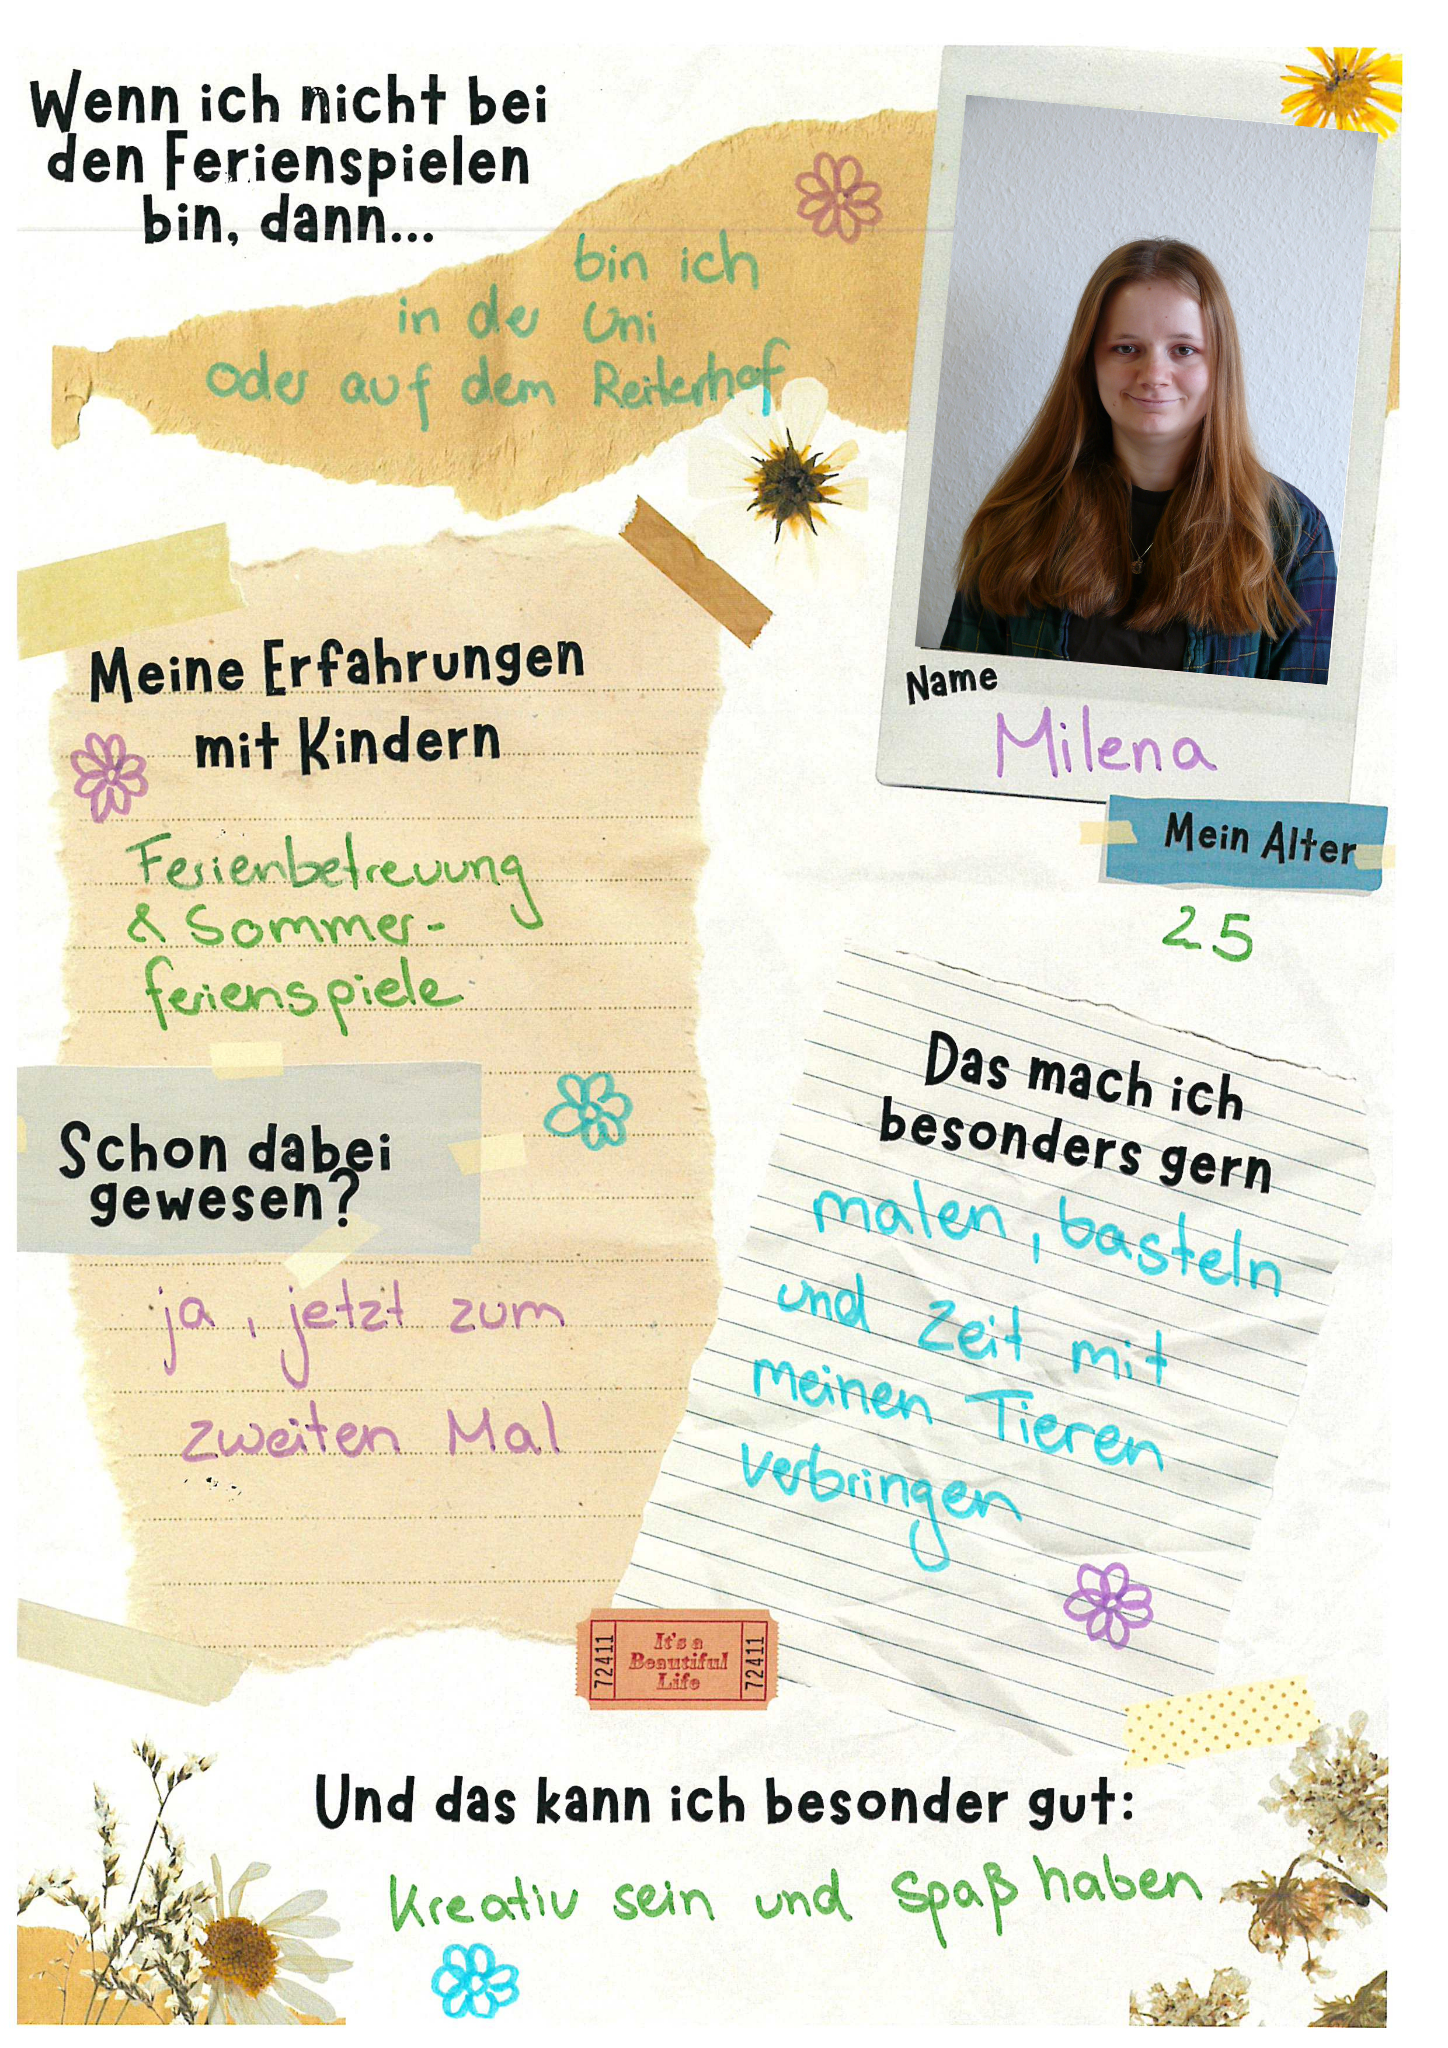 Wenn ich nicht bei
den Ferienspielen
bin, dann...
bin ich
in der Uni
oder auf dem Reiterhof
Name
Milena
Mein Alter
25
Meine Erfahrungen
mit Kindern
Ferienbetreuung
& Sommer-
ferienspiele
Schon dabei
gewesen?
ja, jetzt zum
zweiten Mal
Das mach ich
besonders gern
malen, basteln
und Zeit mit
meinen Tieren
verbringen
72411
It's a
Beautiful
Life
72411
Und das kann ich besonder gut:
Kreativ sein und Spaß haben